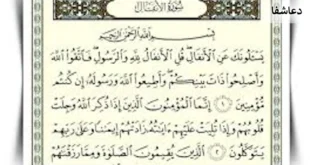 دعاشفا
سُورَةُ الأَنْفَال
بِسْمِ اللَّهِ الرَّحْمَٰنِ الرَّحِيمِ
يَسْـَٔلُونَكَ عَنِ ٱلْأَنفَالِ ۖ قُلِ ٱلْأَنفَالُ لِلَّهِ وَٱلرَّسُولِ ۖ فَٱتَّقُوا۟ ٱللَّهَ
وَأَصْلِحُوا۟ ذَاتَ بَيْنِكُمْ ۖ وَأَطِيعُوا۟ ٱللَّهَ وَرَسُولَهُۥٓ إِن كُنتُم
مُّؤْمِنِينَ ١ إِنَّمَا ٱلْمُؤْمِنُونَ ٱلَّذِينَ إِذَا ذُكِرَ ٱللَّهُ وَجِلَتْ
قُلُوبُهُمْ وَإِذَا تُلِيَتْ عَلَيْهِمْ ءَايَٰتُهُۥ زَادَتْهُمْ إِيمَٰنًا وَعَلَىٰ رَبِّهِمْ
يَتَوَكَّلُونَ ٢ ٱلَّذِينَ يُقِيمُونَ ٱلصَّلَوٰةَ وَمِمَّا رَزَقْنَٰهُمْ